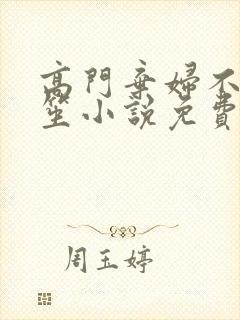 高門棄婦不
笙小說免費
周玉婷